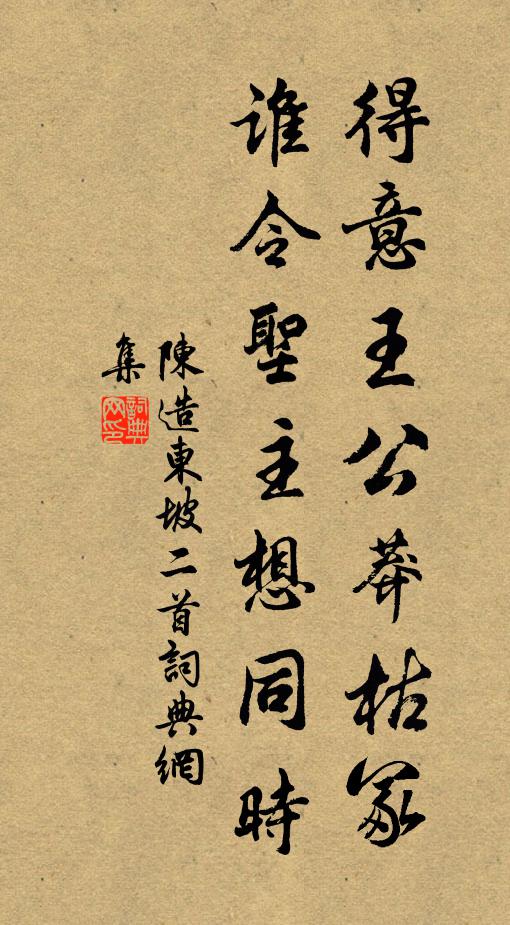 得意王公莽枯冢
誰令聖主想同時
陳造東坡二首詞典網
集
詞典网印